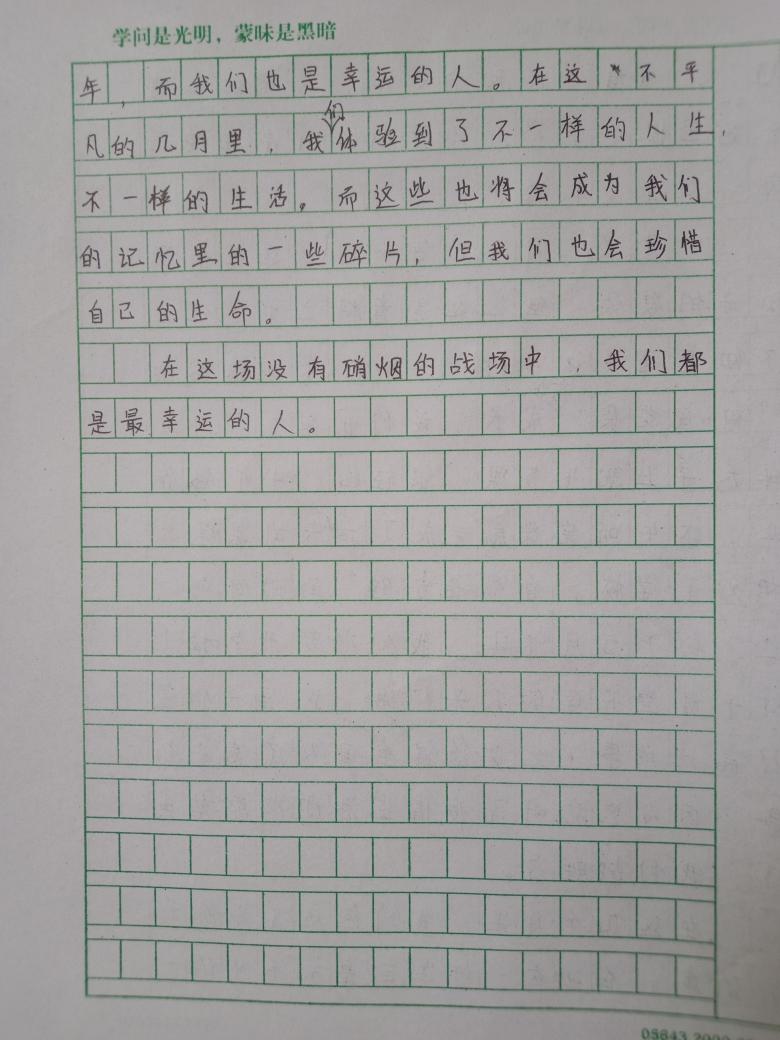 学问是光明，蒙昧是黑暗
年，而我们也是幸运的人。在这不平
凡的几月里，我们体验到了不一样的人生，
不一样的生活。而这些也将会成为我们
的记忆里的一些碎片，但我们也会珍惜
自己的生命。
在这场没有硝烟的战场中，我们都
是最幸运的人。